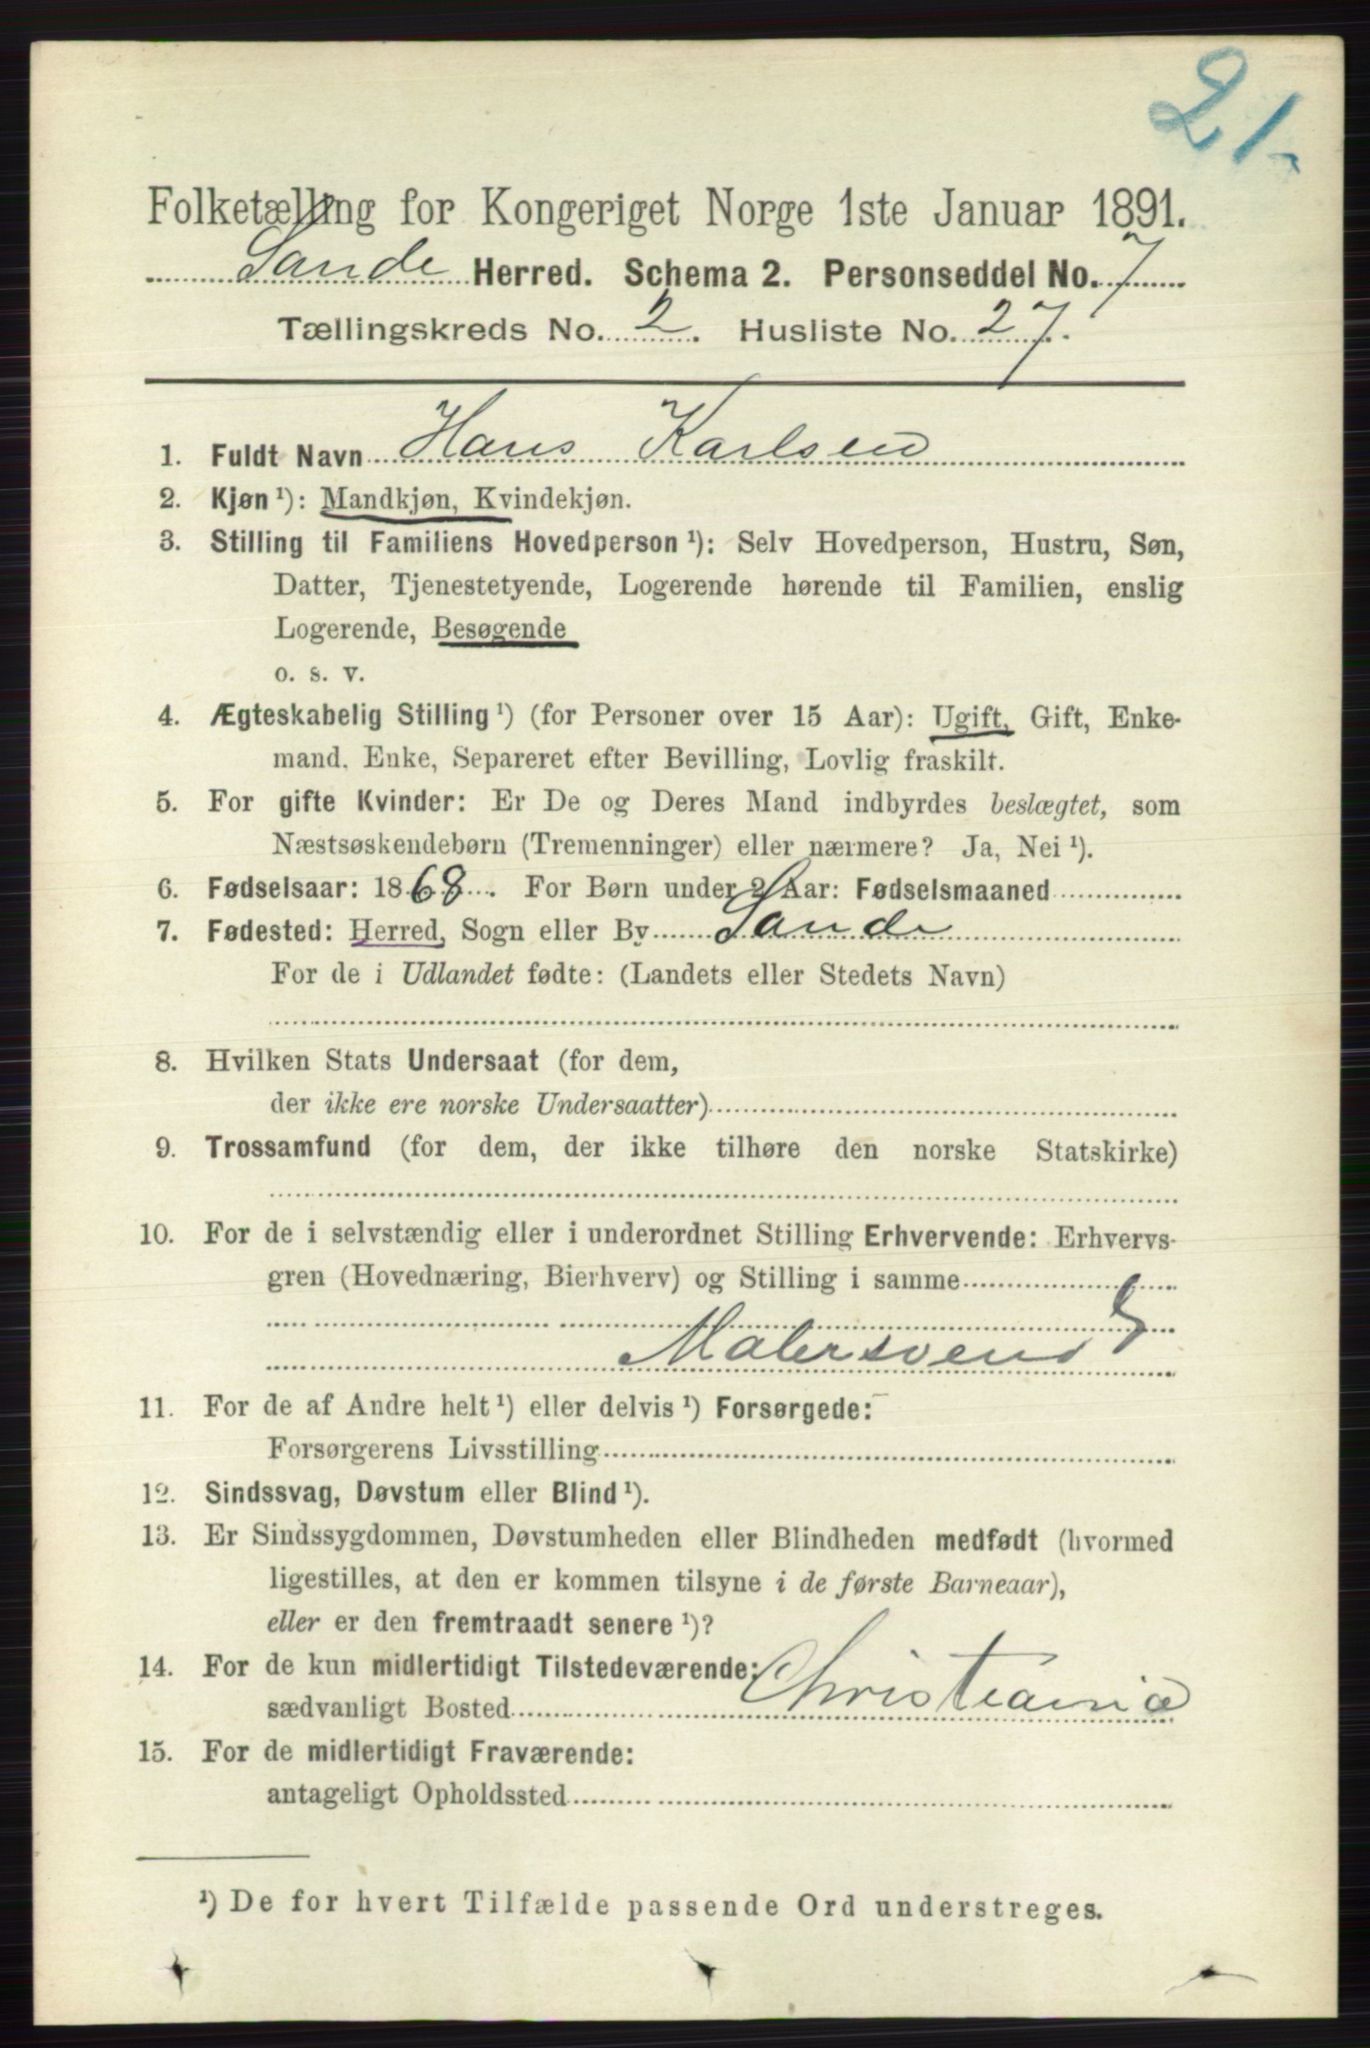 21.
Folketælling for Kongeriget Norge 1ste Januar 1891.
Sande Herred. Schema 2. Personseddel No. 7
Tællingskreds No. 2. Husliste No. 27.
1. Fuldt Navn Hans Karlsen
2. Kjøn ¹): Mandkjøn, Kvindekjøn.
3. Stilling til Familiens Hovedperson ¹): Selv Hovedperson, Hustru, Søn,
Datter, Tjenestetyende, Logerende hørende til Familien, enslig
Logerende, Besøgende
o. s. v.
4. Ægteskabelig Stilling ¹) (for Personer over 15 Aar): Ugift, Gift, Enke-
mand, Enke, Separeret efter Bevilling, Lovlig fraskilt.
5. For gifte Kvinder: Er De og Deres Mand indbyrdes beslægtet, som
Næstsøskendebørn (Tremenninger) eller nærmere? Ja, Nei ¹).
6. Fødselsaar: 1868. For Børn under 2 Aar: Fødselsmaaned
7. Fødested: Herred, Sogn eller By Sande
For de i Udlandet fødte: (Landets eller Stedets Navn)
8. Hvilken Stats Undersaat (for dem,
der ikke ere norske Undersaatter)
9. Trossamfund (for dem, der ikke tilhøre den norske Statskirke)
10. For de i selvstændig eller i underordnet Stilling Erhvervende: Erhvervs-
gren (Hovednæring, Bierhverv) og Stilling i samme
Malersvend
11. For de af Andre helt ¹) eller delvis ¹) Forsørgede:
Forsørgerens Livsstilling
12. Sindssvag, Døvstum eller Blind ¹).
13. Er Sindssygdommen, Døvstumheden eller Blindheden medfødt (hvormed
ligestilles, at den er kommen tilsyne i de første Barneaar),
eller er den fremtraadt senere ¹)?
14. For de kun midlertidigt Tilstedeværende:
sædvanligt Bosted Christiania
15. For de midlertidigt Fraværende:
antageligt Opholdssted
¹) De for hvert Tilfælde passende Ord understreges.